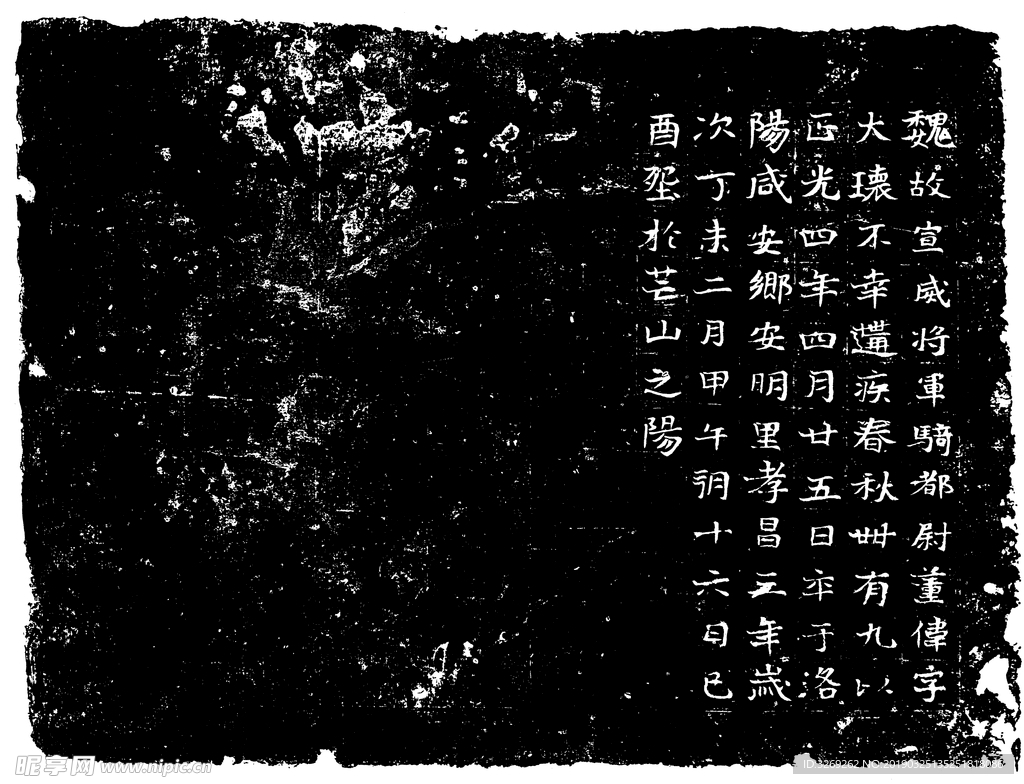 魏故宣威将軍騎都尉董偉字
大瓌不幸遘疾春秋卌有九以
正光四年四月廿五日卒于洛
陽咸安鄉安明里孝昌三年歲
次丁未二月甲午朔十六日己
酉塟於芒山之陽
昵享网 www.nipic.cn
ID:3269262 NO:20190325135351818086